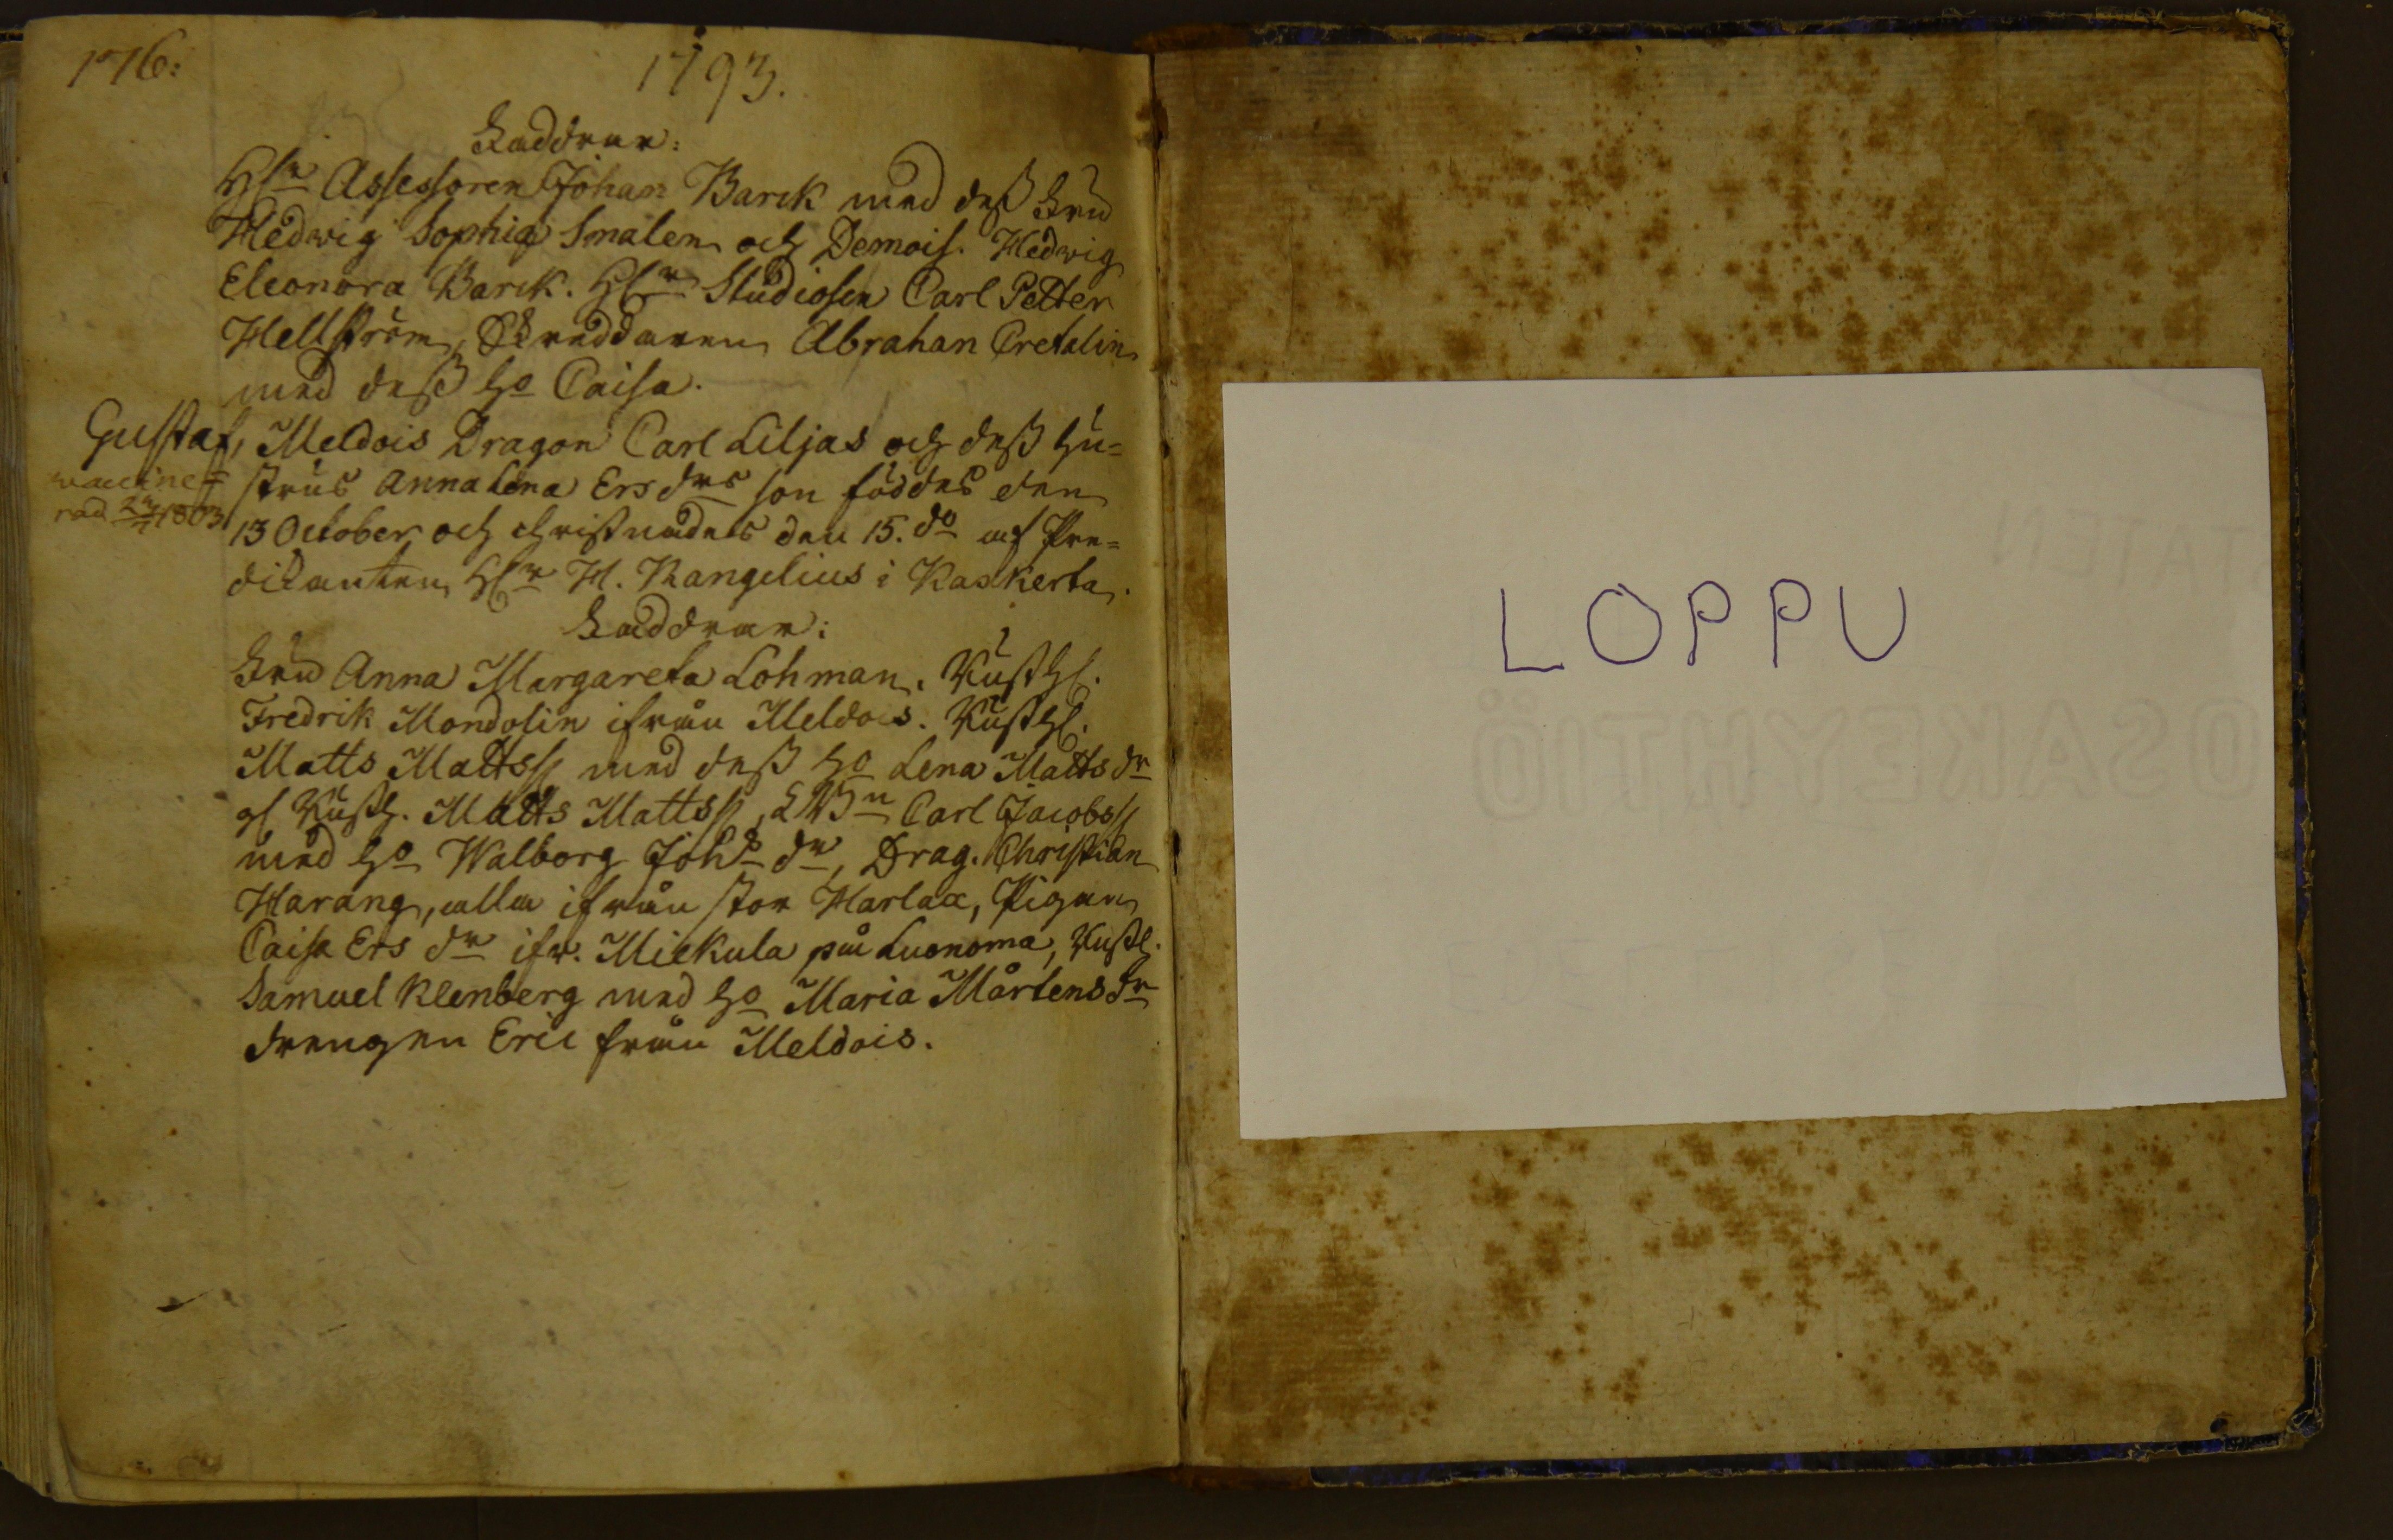 176:
1793.
Faddrar:
H:r Assessoren Johan Barck med dess Fru
Hedwig Sophia Smalen och Demois. Hedwig
Eleonora Barck. H:r Studiosen Carl Petter
Hellström, Skreddaren Abrahan Cretalin
med dess Ho Caisa.
Gustaf, Meldois Dragon Carl Liljas och dess hu-
vaccine=
strus Anna Lena Ers drs son föddes den
rad 24/7 1803
13 October och christnades den 15. do af Pre=
dikanten H:r H. Rangelius i Kaskerta.
Faddrar:
Fru Anna Margareta Lohman. Rusth.
Fredrik Mondolin ifrån Meldois. Rusth.
Matts Mattss med dess Ho Lena Matts dr
gl Rusth. Matts Mattss, Carl Jacobss
med Ho Walborg Johs dr, Drag. Christian
Harang, alla ifrån stor Harlax, Pigan
Caisa Ers dr ifr. Mickula på Luonoma, Rusth.
Samuel Klenberg med Ho Maria Mårtens dr
drengen Eric från Meldois.
LOPPU
TATEN
OSAKEYHTIÖ